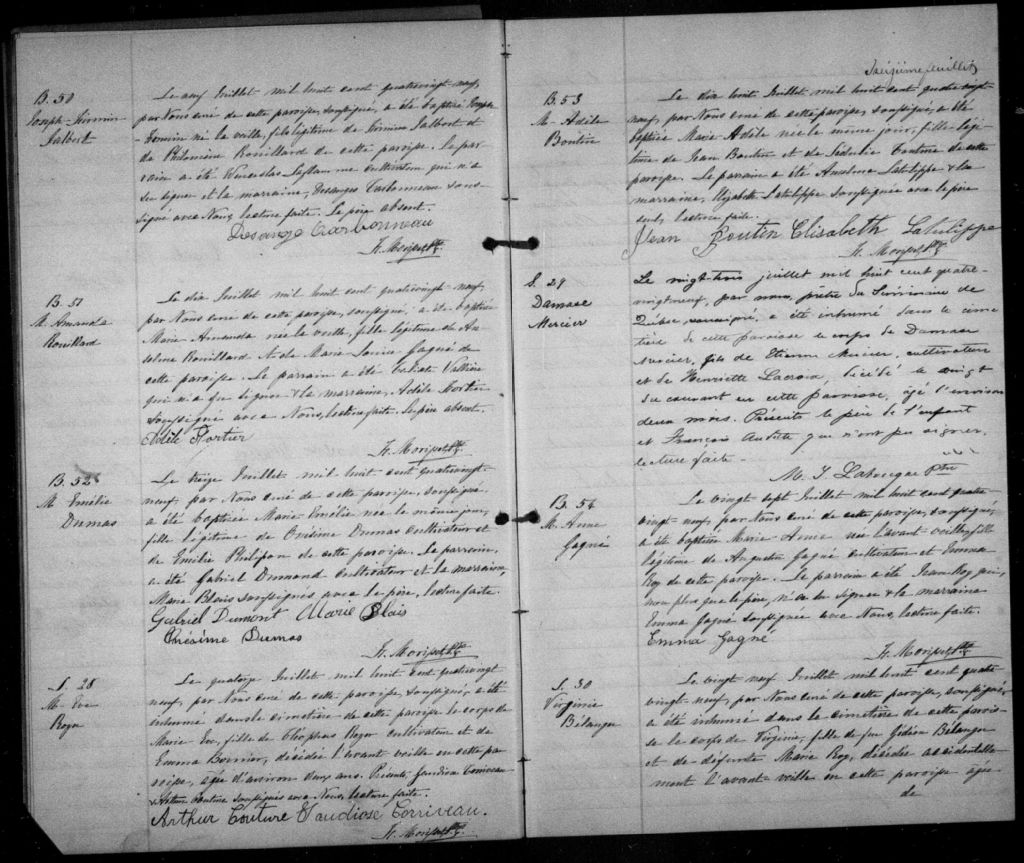 B. 50
Joseph-Firmin
Jalbert
Le neuf Juillet mil huit cent quatrevingt neuf,
par Nous curé de cette paroisse, soussigné, a été baptisé Joseph
Firmin né la veille, fils légitime de Firmin Jalbert et
de Philomène Rouillard de cette paroisse. Le par-
rain a été Wenceslas Laflamme cultivateur qui n'a
su signer et la marraine, Desanges Carbonneau sous-
signé avec Nous, lecture faite. Le père absent.
Desange Carbonneau
B. 51
M. Amanda
Rouillard
Le dix Juillet mil huit cent quatrevingt neuf,
par Nous curé de cette paroisse, soussigné, a été baptisée
Marie Amanda née la veille, fille légitime de An-
selme Rouillard et de Marie Louise Gagné de
cette paroisse. Le parrain a été Baptiste Vallière
qui n'a su signer & la marraine, Adèle Fortier
soussigné avec Nous, lecture faite. Le père absent.
Adèle Fortier
B. 52
M. Emélie
Dumas
Le treize Juillet mil huit cent quatrevingt-
neuf, par Nous curé de cette paroisse, soussigné,
a été baptisée Marie Emélie née le même jour,
fille légitime de Onésime Dumas cultivateur et
de Emélie de cette paroisse. Le parrain
a été Gabriel Dumond cultivateur et la marraine,
Marie Blais soussignés avec le père, lecture faite.
Gabriel Dumont Marie Blais
Onésime Dumas
S. 28
M. Eve
Roger
Le quatorze Juillet mil huit cent quatrevingt
neuf, par Nous curé de cette paroisse, soussigné, a été
inhumé dans le cimetière de cette paroisse le corps de
Marie Eve, fille de Cléophas Roger cultivateur et de
Emma Bernier, décédée l'avant veille en cette pa-
roisse, agée d'environ deux ans. Présents, Gaudiose Corriveau
& Arthur Couture soussignés avec Nous, lecture faite.
Arthur Couture Gaudiose Corriveau.
Treizième feuillet
B. 53
M. Adèle
Boutin
Le dix huit Juillet mil huit cent quatrevingt
neuf, par Nous curé de cette paroisse, soussigné, a été
baptisée Marie Adèle née le même jour, fille légi-
time de Jean Boutin et de Couture de cette
paroisse. Le parrain a été Anselme Latulippe & la
marraine, Elizabeth Latulippe soussignée avec le père
seul, lecture faite.
Jean Boutin Elisabeth Latulippe
S. 29
Damase
Mercier
Le vingt-trois juillet mil huit cent quatre-
vingt neuf, par nous, prêtre du Séminaire de
Québec, soussigné, a été inhumé dans le cime-
tière de cette paroisse le corps de Damase
Mercier, fils de Etienne Mercier, cultivateur
et de Henriette Lacroix, décédé le vingt
du courant en cette paroisse, agé d'environ
deux mois. Présents le père de l'enfant
et François qui n'ont pu signer,
lecture faite.
B. 54
M. Anne
Gagné
Le vingt sept Juillet mil huit cent quatre
vingt-neuf, par Nous curé de cette paroisse, soussigné,
a été baptisée Marie Anne née l'avant veille, fille
légitime de Augustin Gagné cultivateur et Emma
Roy de cette paroisse. Le parrain a été Jean Roy qui,
non plus que le père, n'a su signer & la marraine
Emma Gagné soussignée avec Nous, lecture faite.
Emma Gagné
S. 30
Virginie
Bélanger
Le vingt neuf Juillet mil huit cent quatre
vingt-neuf, par Nous curé de cette paroisse, soussigné,
a été inhumée dans le cimetière de cette parois-
se le corps de Virginie, fille de feu Gédéon Bélanger
et de défunte Marie Roy, décédée accidentelle
ment l'avant-veille en cette paroisse agée
de